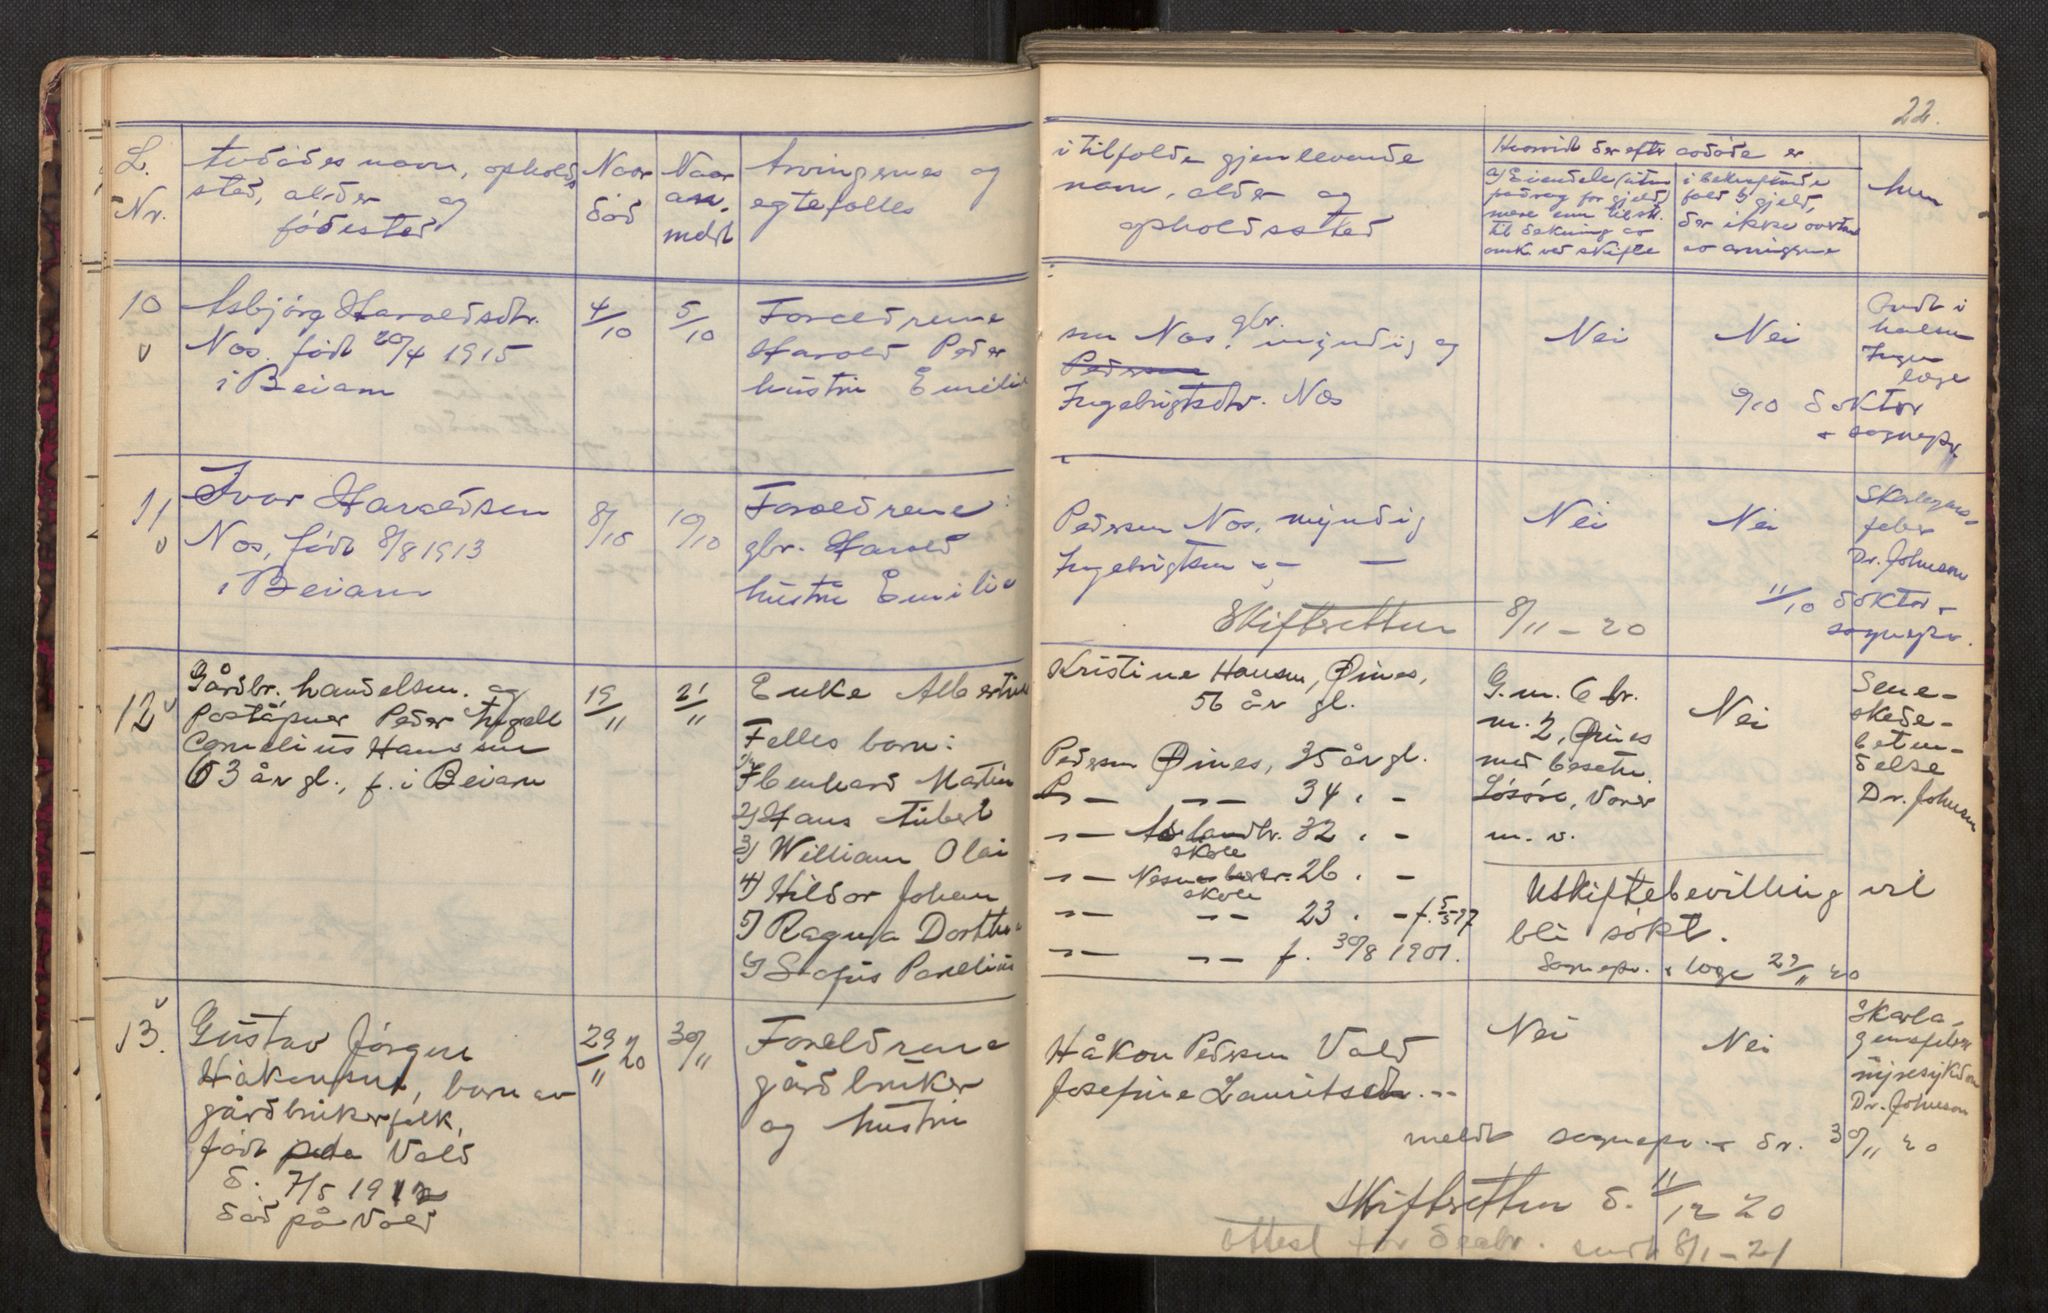 22.
L.
Nr.
Avdødes navn, opholds
sted, alder og
fødested
Naar
død
Naar
an.
meldt
Arvingernes og
egtefælles
i tilfælde gjenlevende
navn, alder og
opholdssted
Hvorvidt der efter avdøde er
a) Eiendele (uten
fradrag for gjæld)
mere enn tilstr.
til dækning av
omk. ved skifte
i bekræftende
fald b) gjeld,
der ikke overtas
av arvingerne
10
v
Asbjørg Haraldsdtr.
Nos. født 20/4 1915
i Beiarn
4/10
5/10
Forældrene
Harald Peder
hustru Emilie
sen Nos. gbr. myndig og
Pedersen
Ingebrigtsdtr. Nos
Nei
Nei
Ondt i
halsen
Ingen
læge
9/10 doktor
+ sognepr.
11
v
Ivar Haraldsen
Nos, født 8/8 1913
i Beiarn
8/10
10/10
Forældrene:
gbr. Harald
hustru Emilie
Pedersen Nos, myndig
Ingebrigtsen -"- —
Nei
Nei
Skarlagens-
feber
Dr. Johnson
11/10 doktor +
sognepr.
Skifteretten 8/11 - 20
12 v
Gårdbr. handelsm. og
poståpner Peder Angell
Cornelius Hanssen
63 år gl., f. i Beiarn
19/11
21/11
Enke Albertine
Felles barn:
1) Ebenhard Martin
2) Hans Aubert
3) William Olai
4) Hildor Johan
5) Ragna Dorthea
6) Sofus Parelius
Kristine Hansen, Øines,
56 år gl.
Pedersen Øines, 35 år gl.
P -"- -"- 34 . -
-"- landbr. 32 . -
skole
-"- Nesna 26 . -
skole
-"- -"- 23 . - f. 5/5 97
-"- -"- f. 30/8 1901.
G. nr. 6 br.
nr. 2, Øines
med besetn.
Løsøre, Varer
m. v.
Nei
Sene-
skede-
beten-
delse
Dr. Johnson
Uskiftebevilling vil
bli søkt.
Sognepr. + læge 23/11 20
13. v
Gustav Jørgen
Håkonsen, barn av
gårdbrukerfolk,
født på Vold
d. 7/5 1912
død på Vold
23/11 20
30/11
Foreldrene
gårdbruker
og hustru
Håkon Pedersen Vold
Josefine Lauritsdtr. -"-
Nei
Nei
Skarla-
gensfeber
nyresykdom
Dr. Johnson
meldt sognepr. + dr. 30/11 20
Skifteretten d. 11/12 20
Attest for sendt 8/1 - 21